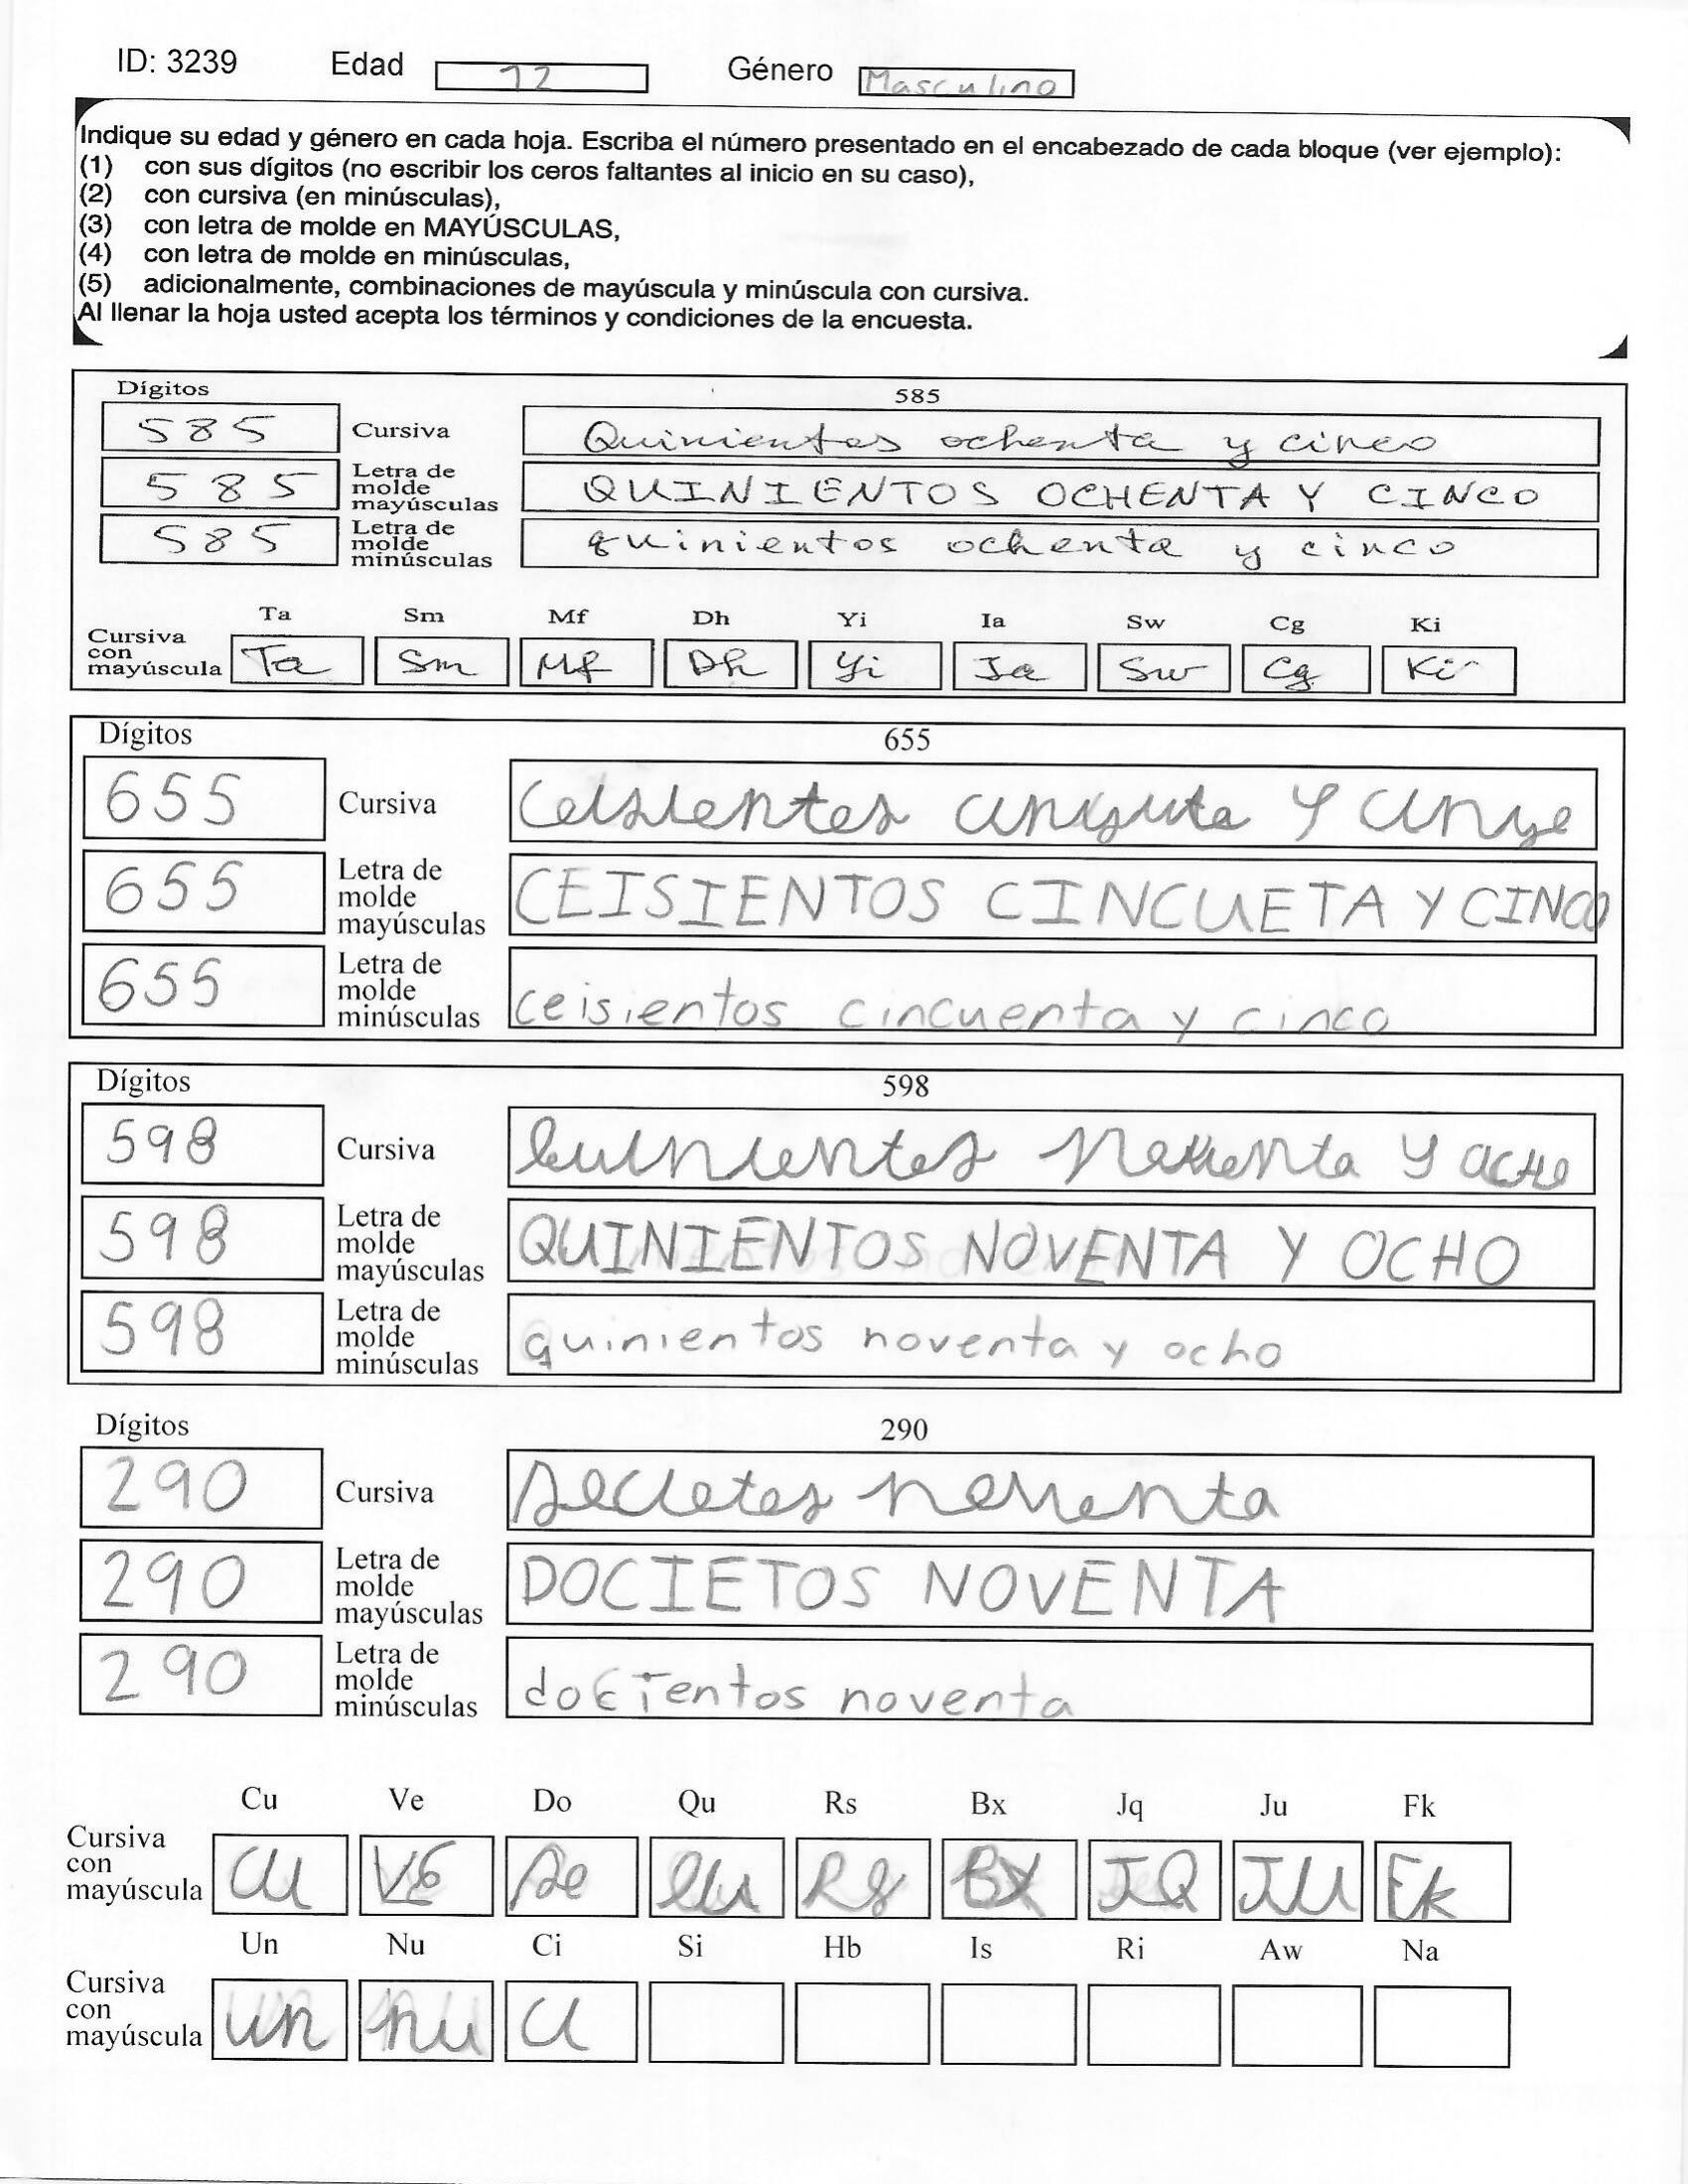 ID: 3239 Edad 12 Género Masculino
Indique su edad y género en cada hoja. Escriba el número presentado en el encabezado de cada bloque (ver ejemplo):
(1) con sus dígitos (no escribir los ceros faltantes al inicio en su caso),
(2) con cursiva (en minúsculas),
(3) con letra de molde en MAYÚSCULAS,
(4) con letra de molde en minúsculas,
(5) adicionalmente, combinaciones de mayúscula y minúscula con cursiva.
Al llenar la hoja usted acepta los términos y condiciones de la encuesta.
Dígitos 585
585 Cursiva Quinientos ochenta y cinco
585 Letra de molde mayúsculas QUINIENTOS OCHENTA Y CINCO
585 Letra de molde minúsculas quinientos ochenta y cinco
Ta Sm Mf Dh Yi Ia Sw Cg Ki
Cursiva con mayúscula Ta Sm Mf Dh Yi Ia Sw Cg Ki
Dígitos 655
655 Cursiva Ceisientos y
655 Letra de molde mayúsculas CEISIENTOS CINCUETA Y CINCO
655 Letra de molde minúsculas ceisientos cincuenta y cinco
Dígitos 598
598 Cursiva Quinientos noventa y ocho
598 Letra de molde mayúsculas QUINIENTOS NOVENTA Y OCHO
598 Letra de molde minúsculas quinientos noventa y ocho
Dígitos 290
290 Cursiva Docietos noventa
290 Letra de molde mayúsculas DOCIETOS NOVENTA
290 Letra de molde minúsculas docientos noventa
Cu Ve Do Qu Rs Bx Jq Ju Fk
Cursiva con mayúscula Cu Ve Do Qu Rs Bx JQ Ju Fk
Un Nu Ci Si Hb Is Ri Aw Na
Cursiva con mayúscula un nu Ci